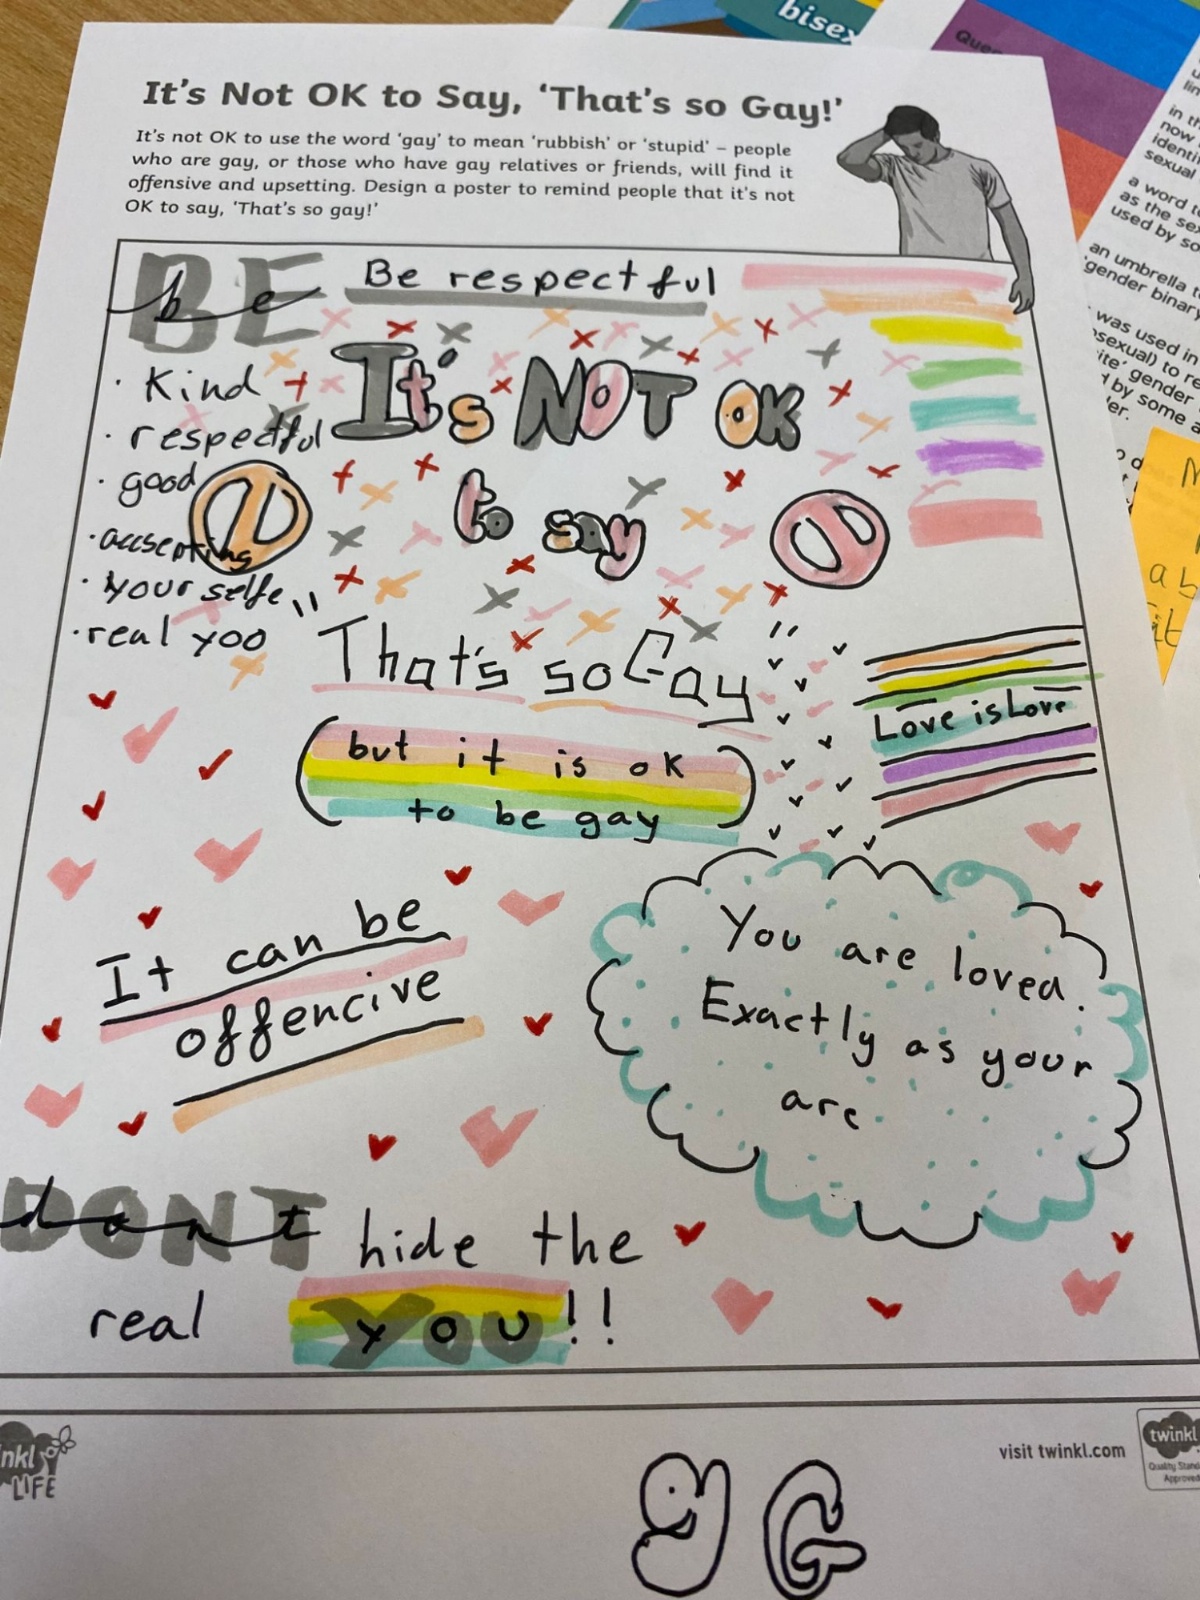 bisex
Que
It's Not OK to Say, 'That's so Gay!'
It's not OK to use the word 'gay' to mean 'rubbish' or 'stupid' – people
who are gay, or those who have gay relatives or friends, will find it
offensive and upsetting. Design a poster to remind people that it's not
OK to say, 'That's so gay!'
in th
now
identi
sexual
a word to
as the sex
used by so
an umbrella t
'gender binary
was used in
sexual) to re
ite' gender
d by some a
der.
BE
be
Be respectful
· Kind
· respectful
· good
· accsenting
· your selfe
· real yoo
It's NOT OK
to say
"That's so Gay"
(but it is ok
to be gay)
Love is Love
It can be
offencive
You are loved.
Exactly as your
are
DONT
dont hide the
real you!!
YOU
inkl
LIFE
visit twinkl.com
twinkl
Quality Standa
Approved
9G